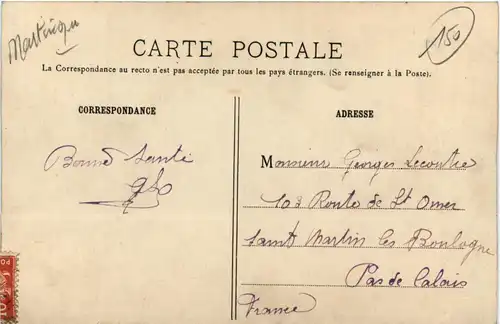 Martinique
150
CARTE POSTALE
La Correspondance au recto n'est pas acceptée par tous les pays étrangers. (Se renseigner à la Poste).
CORRESPONDANCE
Bonne Santé
ADRESSE
Monsieur Georges Lecoutre
Route de St Omer
Saint Martin les Boulogne
Pas de Calais
France